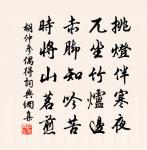 挑燈伴寒夜
兀坐竹爐邊
赤腳知吟苦
時將山茗煎
胡仲參偶得詞典網集